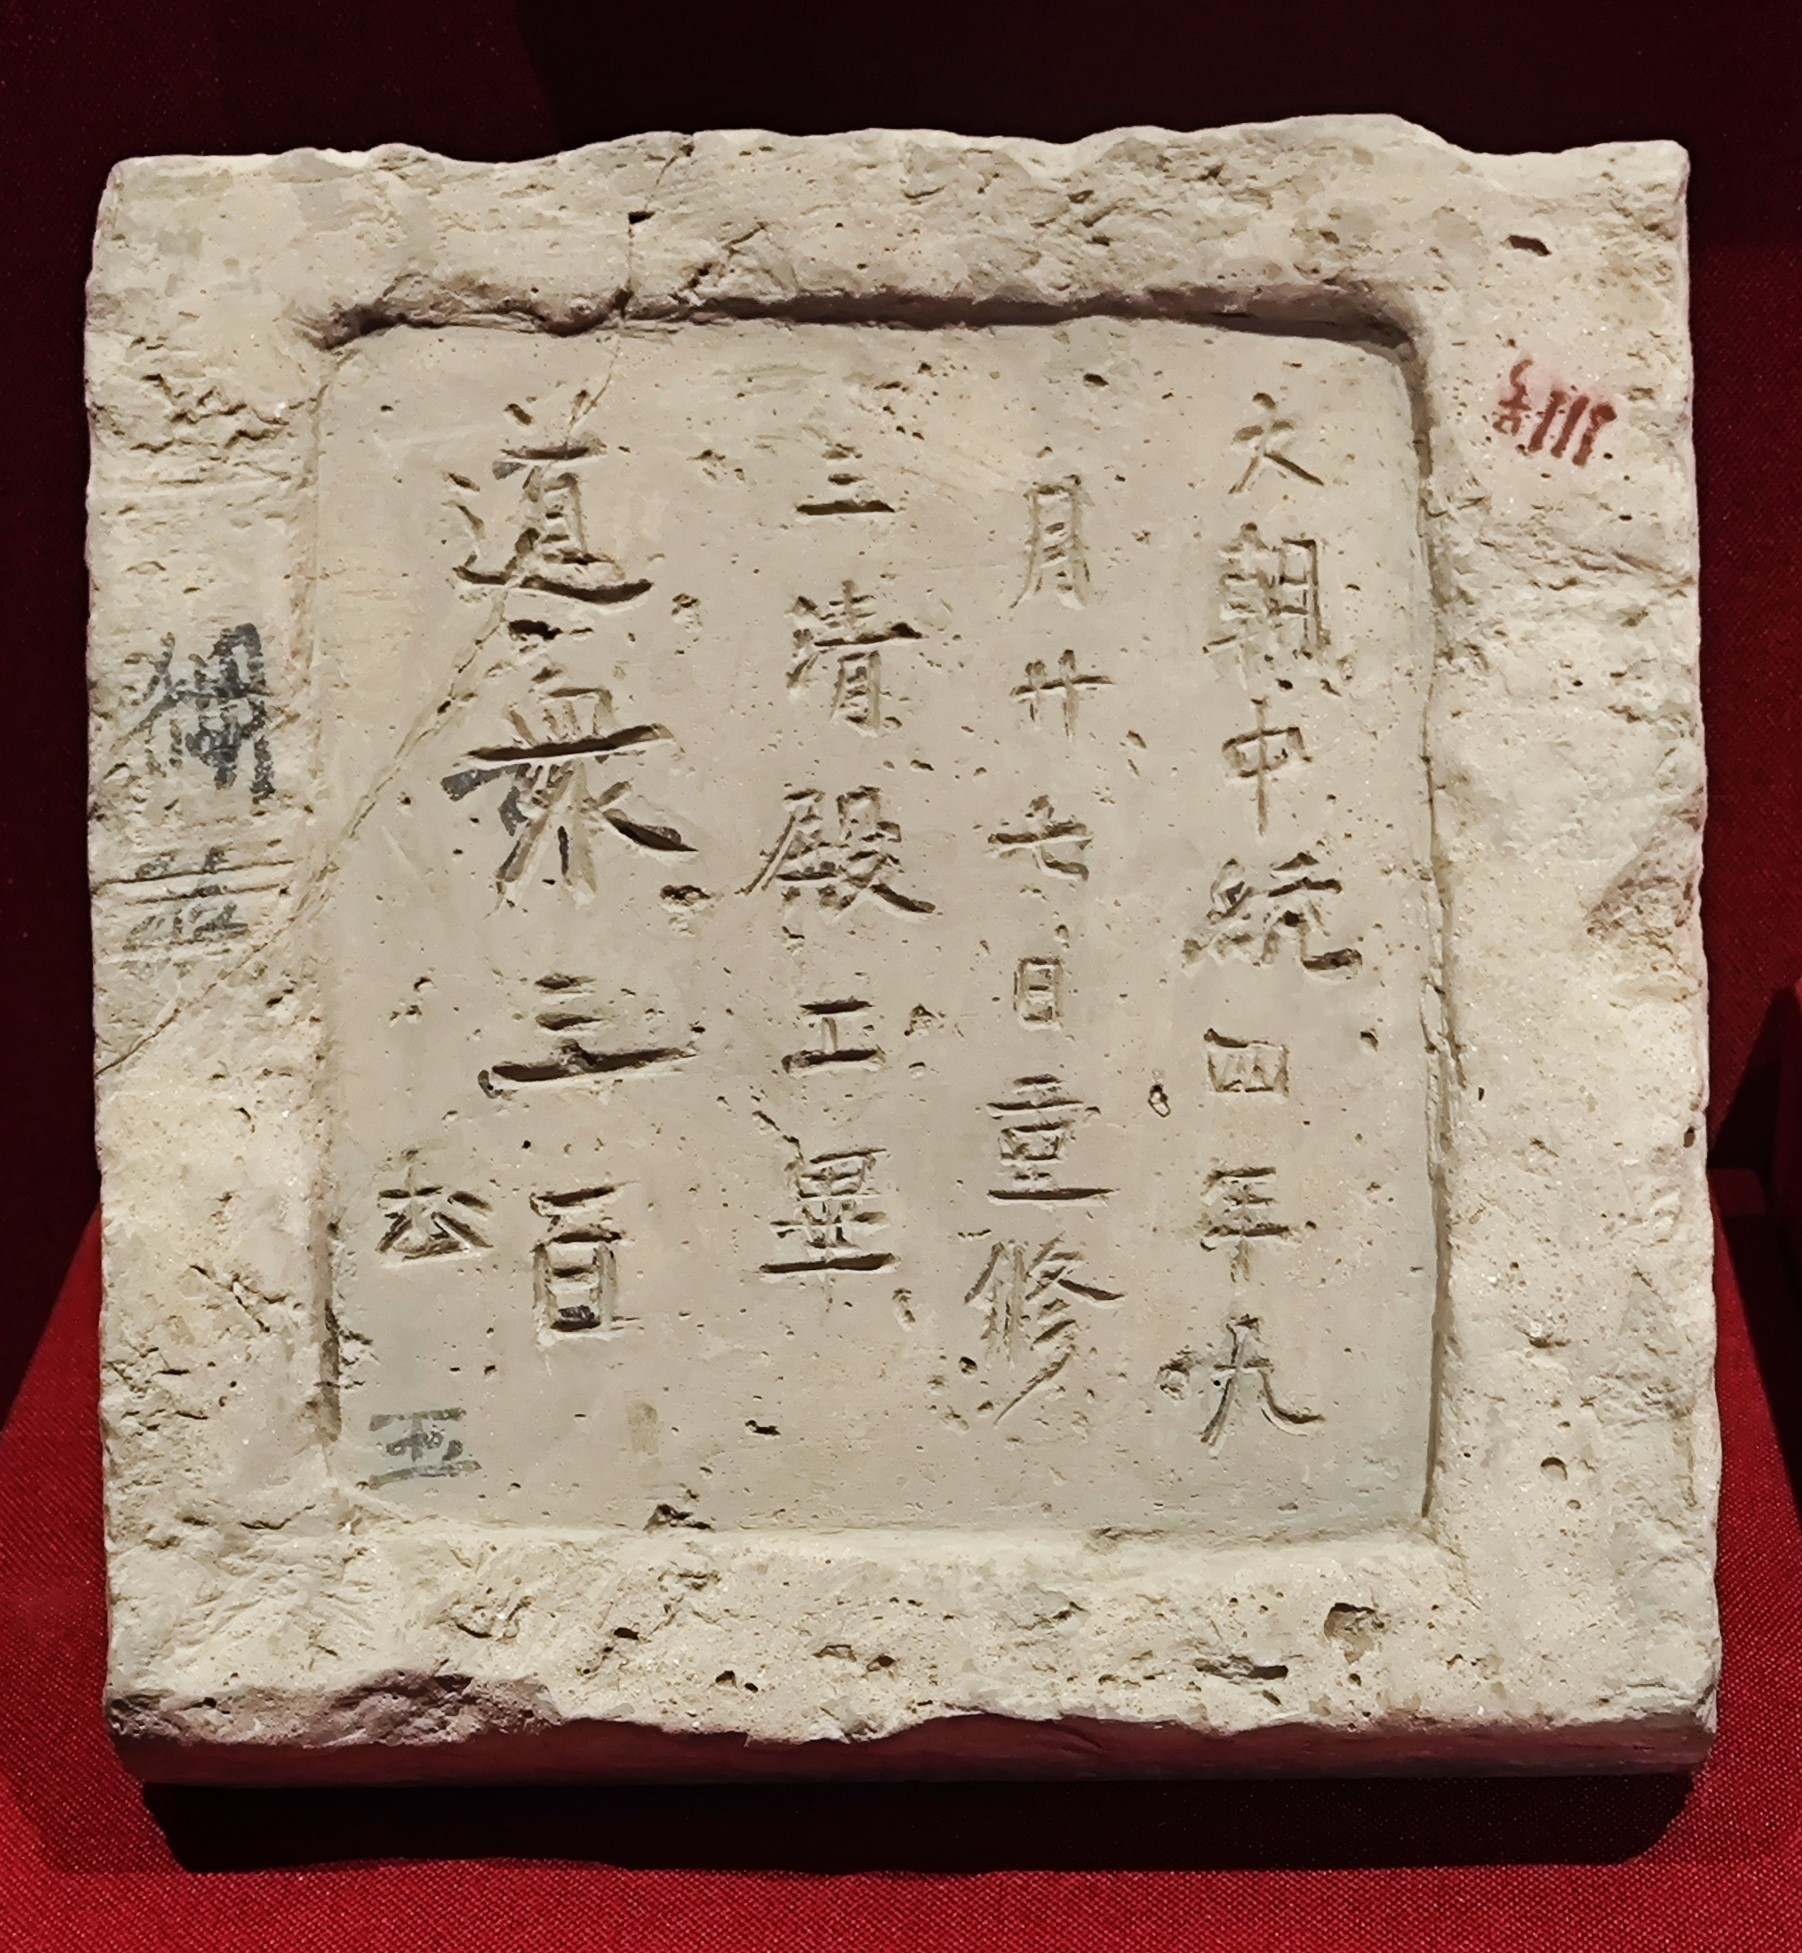 大朝中統四年九
月廿七日重修
三清殿工畢
道衆三百